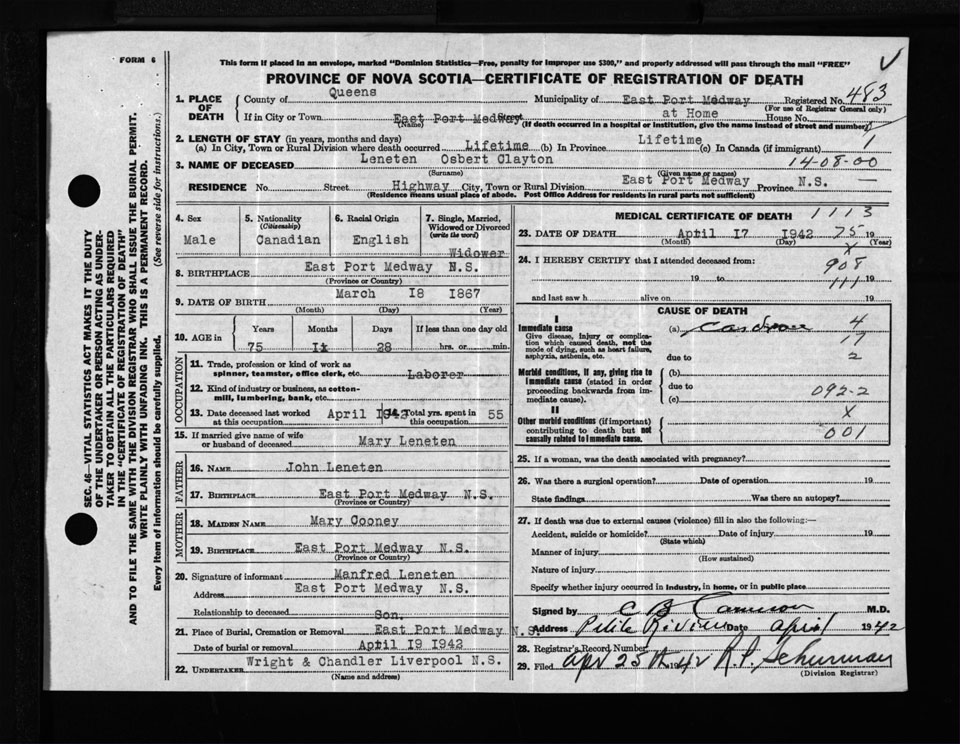 FORM 6
This form if placed in an envelope, marked "Dominion Statistics—Free, penalty for improper use $300," and properly addressed will pass through the mail "FREE"
PROVINCE OF NOVA SCOTIA—CERTIFICATE OF REGISTRATION OF DEATH
1. PLACE OF DEATH
County of Queens Municipality of East Port Medway Registered No. 483
(For use of Registrar General only)
If in City or Town East Port Medway Street at Home House No.
(Name) (If death occurred in a hospital or institution, give the name instead of street and number)
2. LENGTH OF STAY (in years, months and days)
(a) In City, Town or Rural Division where death occurred Lifetime (b) In Province Lifetime (c) In Canada (if immigrant) 1
3. NAME OF DECEASED Leneten Osbert Clayton 14-08-00
(Surname) (Given name or names)
RESIDENCE No. Street Highway City, Town or Rural Division East Port Medway Province N.S. —
(Residence means usual place of abode. Post Office Address for residents in rural parts not sufficient)
SEC. 46—VITAL STATISTICS ACT MAKES IT THE DUTY
OF THE UNDERTAKER OR PERSON ACTING AS UNDER-
TAKER TO OBTAIN ALL THE PARTICULARS REQUIRED
IN THE "CERTIFICATE OF REGISTRATION OF DEATH"
AND TO FILE THE SAME WITH THE DIVISION REGISTRAR WHO SHALL ISSUE THE BURIAL PERMIT.
WRITE PLAINLY WITH UNFADING INK. THIS IS A PERMANENT RECORD.
Every item of information should be carefully supplied. (See reverse side for instructions.)
4. Sex
Male
5. Nationality
(Citizenship)
Canadian
6. Racial Origin
English
7. Single, Married,
Widowed or Divorced
(write the word)
Widower
8. BIRTHPLACE East Port Medway N.S.
(Province or Country)
9. DATE OF BIRTH March I8 I867
(Month) (Day) (Year)
10. AGE in
Years Months Days If less than one day old
75 II 28 hrs. or min.
OCCUPATION
11. Trade, profession or kind of work as
spinner, teamster, office clerk, etc. Laborer
12. Kind of industry or business, as cotton-
mill, lumbering, bank, etc.
13. Date deceased last worked
at this occupation April I942
14. Total yrs. spent in
this occupation 55
15. If married give name of wife
or husband of deceased Mary Leneten
FATHER
16. NAME John Leneten
17. BIRTHPLACE East Port Medway N.S.
(Province or Country)
MOTHER
18. MAIDEN NAME Mary Cooney
19. BIRTHPLACE East Port Medway N.S.
(Province or Country)
20. Signature of informant Manfred Leneten
Address East Port Medway N.S.
Relationship to deceased Son.
21. Place of Burial, Cremation or Removal East Port Medway N.S.
Date of burial or removal April I9 I942
22. UNDERTAKER Wright & Chandler Liverpool N.S.
(Name and address)
MEDICAL CERTIFICATE OF DEATH 1113
23. DATE OF DEATH April I7 I942 75 19
(Month) (Day) (Year)
24. I HEREBY CERTIFY that I attended deceased from: x
908
19 to 111 19
and last saw h alive on 19
CAUSE OF DEATH
I
Immediate cause
Give disease, injury or complica-
tion which caused death, not the
mode of dying, such as heart failure,
asphyxia, asthenia, etc.
(a) 4
17
due to 2
Morbid conditions, if any, giving rise to
Immediate cause (stated in order
proceeding backwards from im-
mediate cause).
(b)
due to
(c) 092-2
II
Other morbid conditions (if important)
contributing to death but not
causally related to Immediate cause.
x
001
25. If a woman, was the death associated with pregnancy?
26. Was there a surgical operation? Date of operation 19
State findings Was there an autopsy?
27. If death was due to external causes (violence) fill in also the following:—
Accident, suicide or homicide? Date of injury 19
(State which)
Manner of injury
(How sustained)
Nature of injury
Specify whether injury occurred in industry, in home, or in public place
Signed by C B Cameron M.D.
Address Petite Riviere Date April 1942
28. Registrar's Record Number
29. Filed Apr 25th 1942 R.P. Schurman
(Division Registrar)